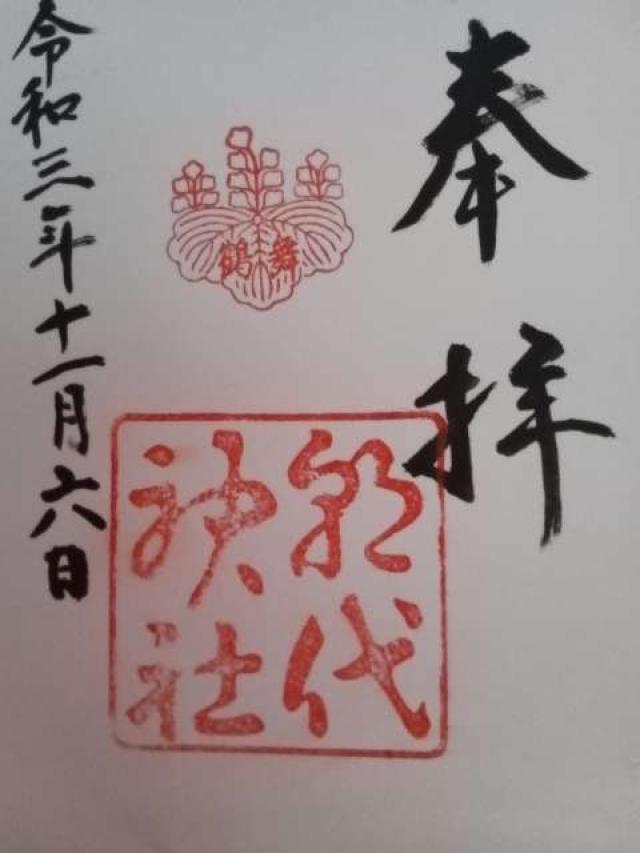 奉拝
舞鶴
朝代
神社
令和三年十一月六日